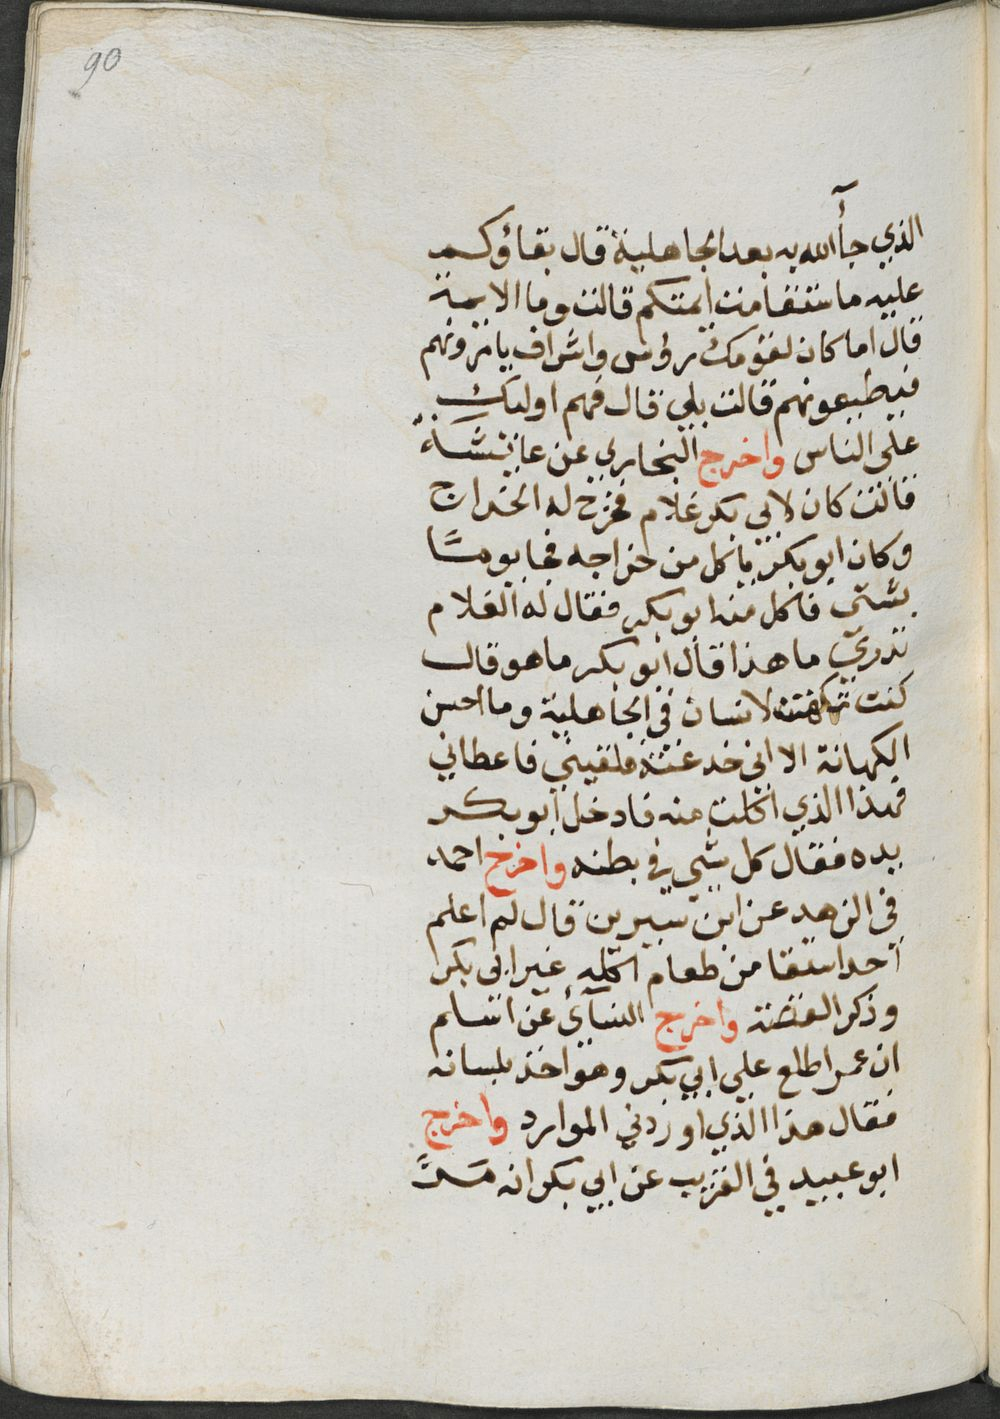 90
الذي جآء الله به بعد الجاهلية قال بقاؤكم
عليه ما استقامت ايمتكم قالت وما الايمة
قال اما كان لقومك روس واشراف يامرونهم
فيطيعونهم قالت بلي قال فهم اوليك
على الناس واخرج البخاري عن عايشة
قالت كان لابي بكر غلام يخرج له الخراج
وكان ابو بكر ياكل من خراجه فجا يومًا
بشي فاكل منه ابو بكر فقال له الغلام
تدري ما هذا قال ابو بكر ما هو قال
كنت تكهنت لانسان في الجاهلية وما احسن
الكهانة الا اني خدعته فلقيني فاعطاني
فهذا الذي اكلت منه فادخل ابو بكر
يده فقال كل شي في بطنه واخرج احمد
في الزهد عن ابن سيرين قال لم اعلم
احدا استقا من طعام اكله غير ابي بكر
وذكر القصة واخرج النسآئ عن اسلم
ان عمر اطلع علي ابي بكر وهو اخذ بلسانه
فقال هذا الذي اوردني الموارد واخرج
ابو عبيد في الغريب عن ابي بكر انه مرّ